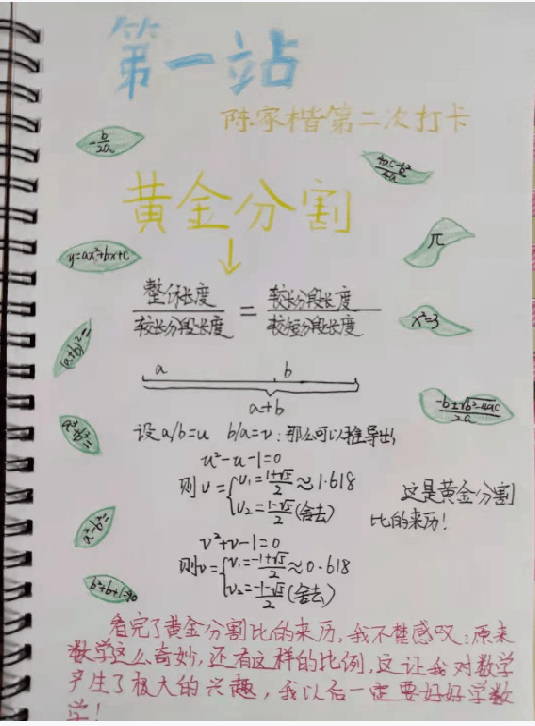 第一站
陈家楷第二次打卡
-b/2a
4ac-b²/4a
黄金分割
π
y=ax²+bx+c
↓
整体长度/较长分段长度 = 较长分段长度/较短分段长度
x²=3
(a+b)²=
a b
a+b
-b±√b²-4ac/2a
设a/b=u b/a=v:那么可以推导出
u²-u-1=0
则u={u₁=1+√5/2≈1.618
u₂=1-√5/2(舍去)
这是黄金分割
比的来历!
a²-b²=
v²+v-1=0
则v={v₁=-1+√5/2≈0.618
v₂=-1-√5/2(舍去)
看完了黄金分割比的来历,我不禁感叹:原来
数学这么奇妙,还有这样的比例,这让我对数学
产生了极大的兴趣,我以后一定要好好学数
学!